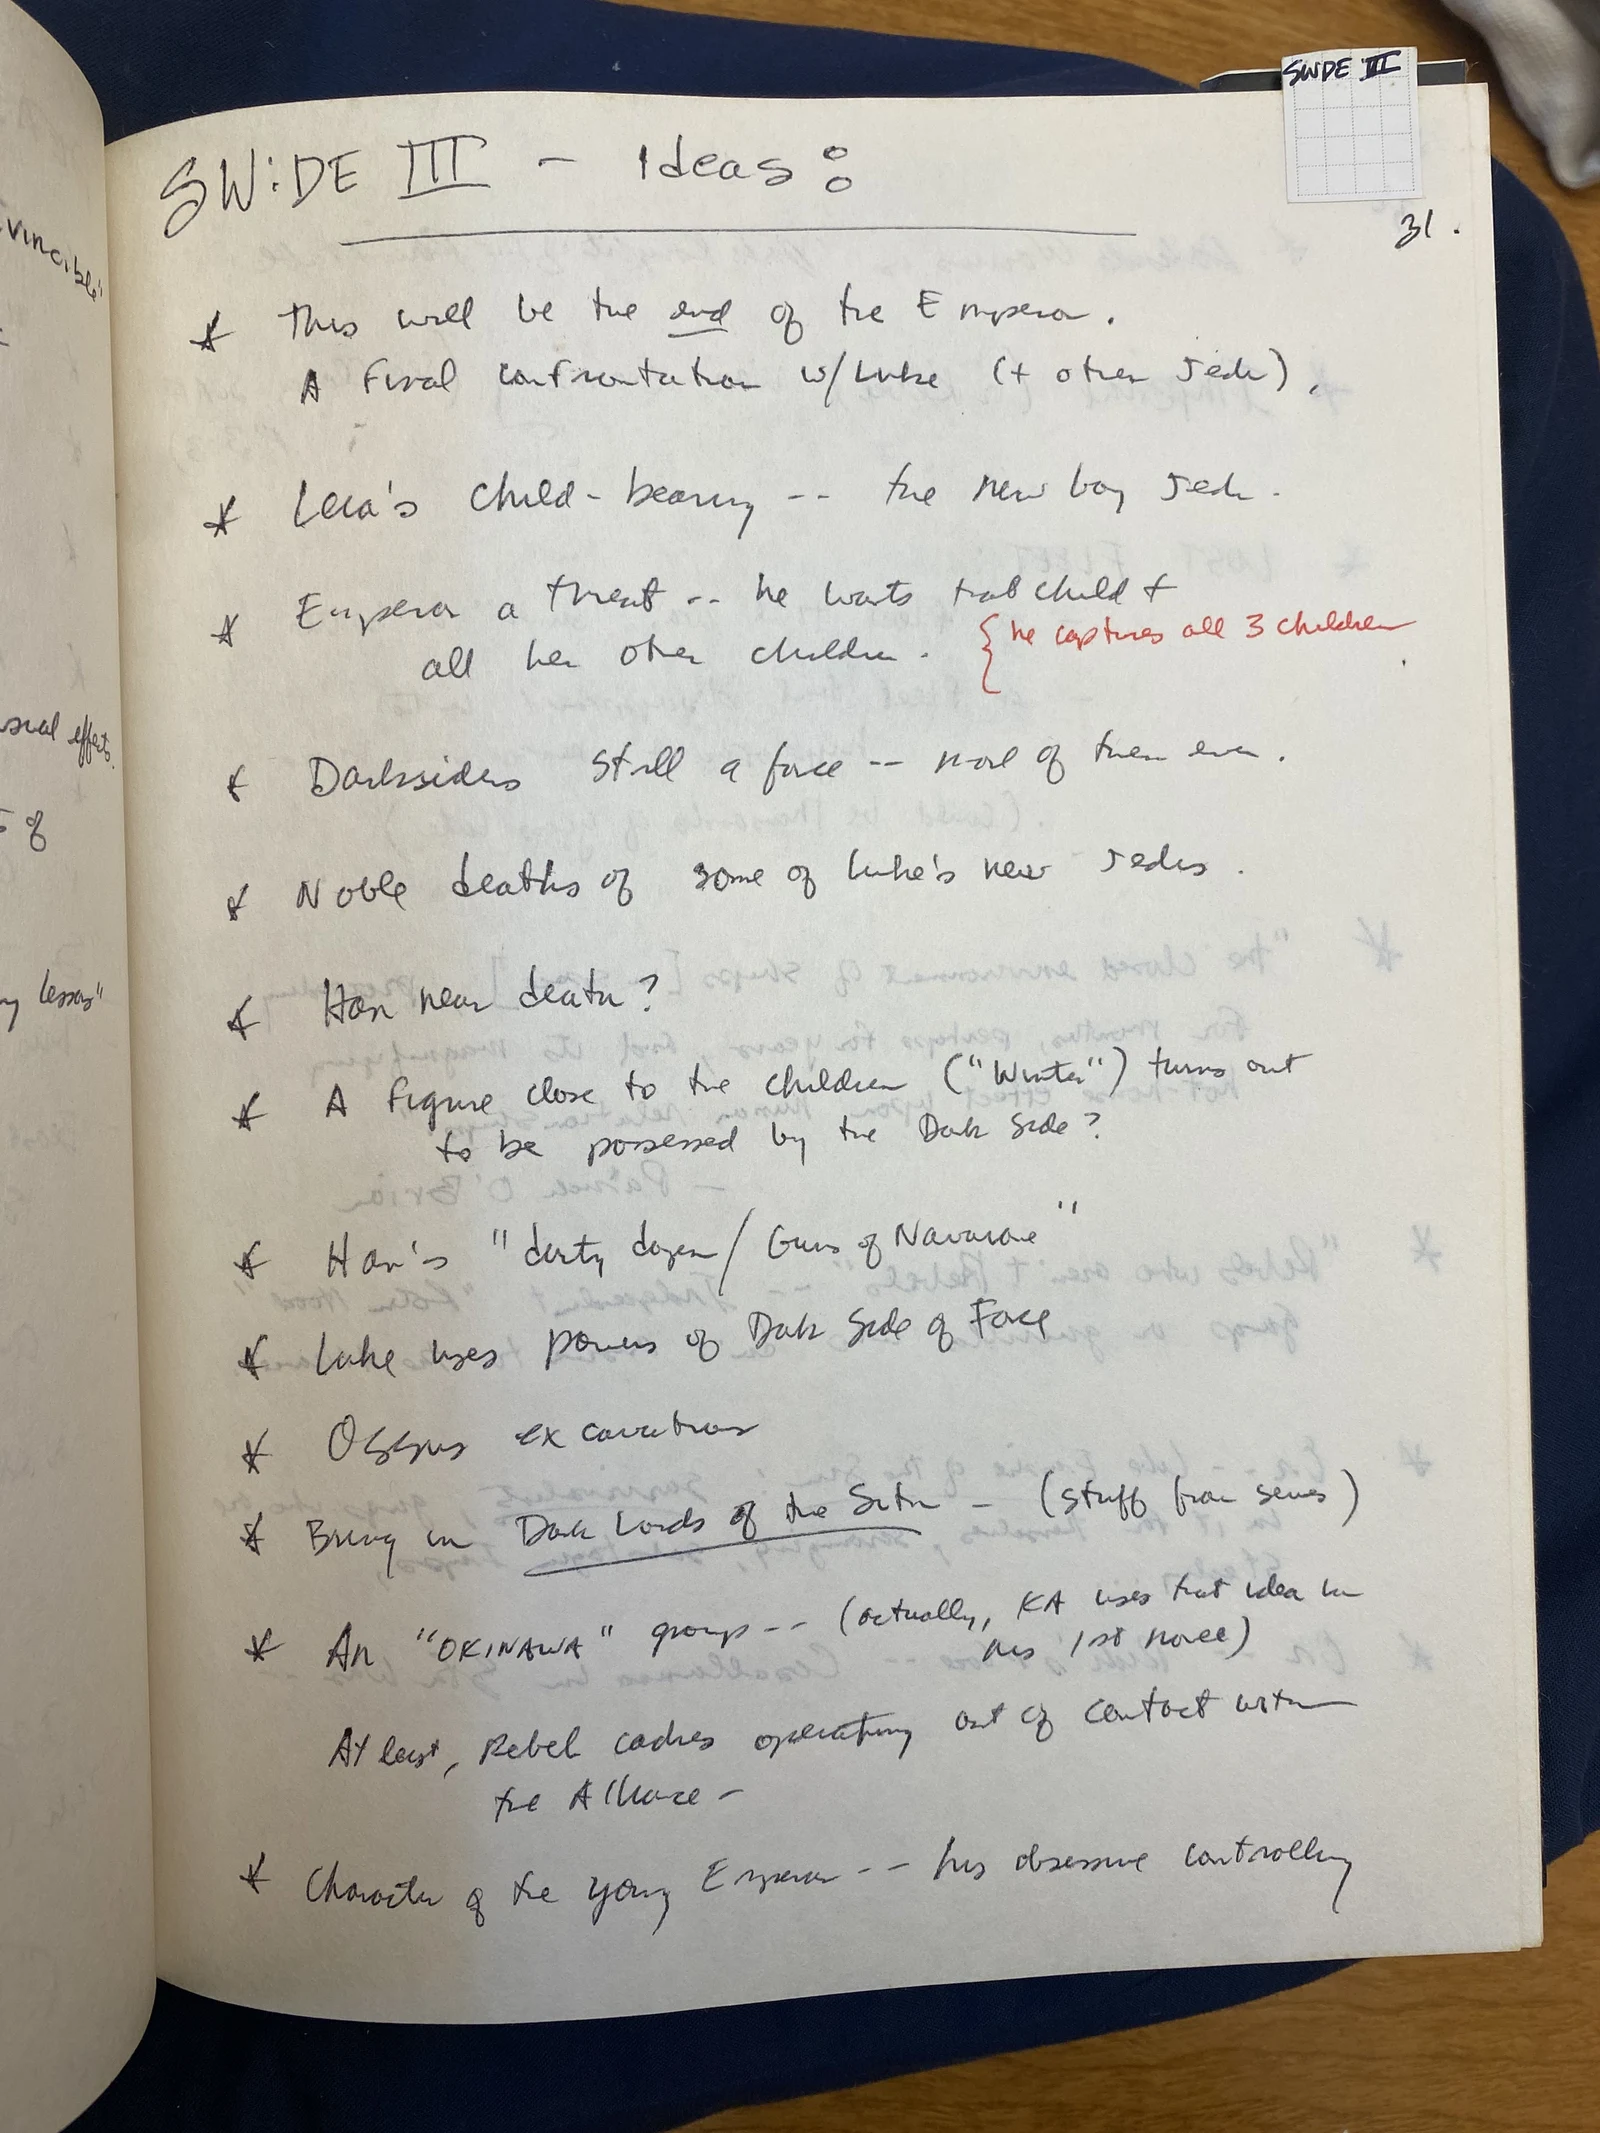 SWDE III
SW:DE III - Ideas:
31.
* This will be the end of the Emperor.
A final confrontation w/Luke (+ other Jedi).
* Leia's child-bearing -- the new boy Jedi.
* Emperor a threat -- he wants that child +
all her other children. { he captures all 3 children
* Darksiders still a force -- more of them even.
* Noble deaths of some of Luke's new Jedis.
* Han near death?
* A figure close to the children ("Winter") turns out
to be possessed by the Dark Side?
* Han's "dirty dozen / Guns of Navarone"
* Luke uses powers of Dark Side of Force
* Ossus excavations
* Bring in Dark Lords of the Sith - (stuff from series)
* An "OKINAWA" group -- (actually, KA uses that idea in
his 1st novel)
At least, Rebel cadres operating out of contact with
the Alliance -
* Character of the young Emperor -- his obsessive controlling
vincible"
effects.
of
lesson"